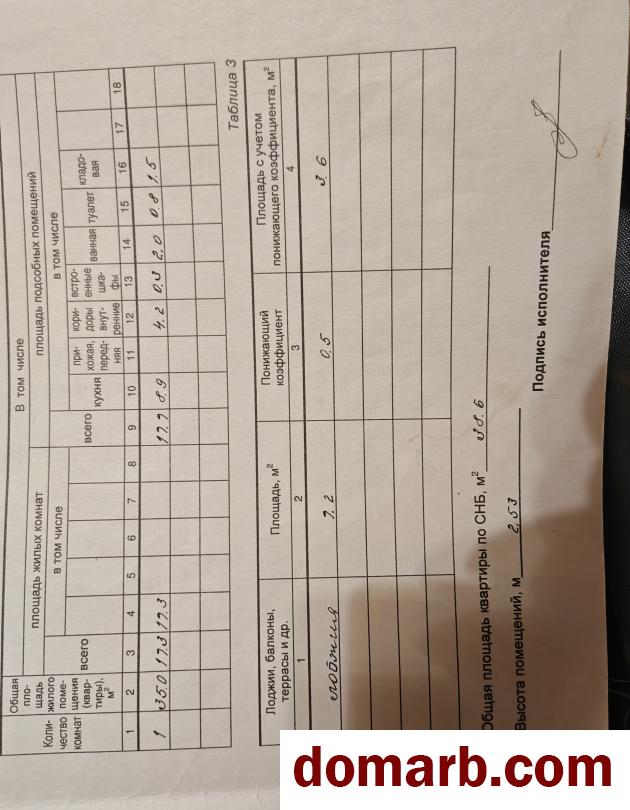 Коли-
чество
комнат
Общая
пло-
щадь
жилого
поме-
щения
(квар-
тиры),
м²
В том числе
площадь жилых комнат
площадь подсобных помещений
всего
в том числе
всего
в том числе
кухня
при-
хожая,
перед-
няя
кори-
доры
внут-
ренние
встро-
енные
шка-
фы
ванная
туалет
кладо-
вая
1 2 3 4 5 6 7 8 9 10 11 12 13 14 15 16 17 18
1 35.0 17.3 17.3 17.7 8.9 4.2 0.3 2.0 0.8 1.5
Таблица 3
Лоджии, балконы,
террасы и др.
Площадь, м²
Понижающий
коэффициент
Площадь с учетом
понижающего коэффициента, м²
1 2 3 4
лоджия 7.2 0.5 3.6
Общая площадь квартиры по СНБ, м² 38.6
Высота помещений, м 2,53
Подпись исполнителя
domarb.com